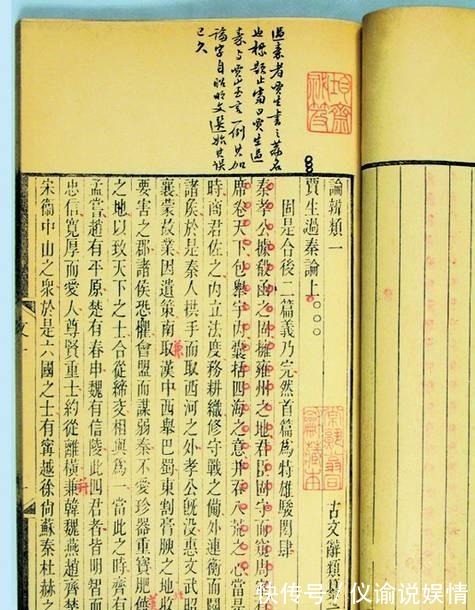 過秦者賈生書之篇名
也標題止當曰賈生過
秦与賈山至言一例其加
論字自昭明文選始其誤
已久
論辨類一 古文辭類纂
賈生過秦論上
固是合後二篇義乃完然首篇為特雄駿閎肆
秦孝公據殽函之固擁雍州之地君臣固守而窺周
席卷天下包舉宇內囊括四海之意并吞八荒之心當是
時商君佐之內立法度務耕織修守戰之備外連衡而鬭
諸侯於是秦人拱手而取西河之外孝公既沒惠文武昭
襄蒙故業因遺策南取漢中西舉巴蜀東割膏腴之地收
要害之郡諸侯恐懼會盟而謀弱秦不愛珍器重寶肥饒
之地以致天下之士合從締交相與爲一當此之時齊有
孟嘗趙有平原楚有春申魏有信陵此四君者皆明智而
忠信寬厚而愛人尊賢重士約從離橫兼韓魏燕趙齊楚
宋衞中山之眾於是六國之士有甯越徐尚蘇秦杜赫之
快传号/仪谕说娱情